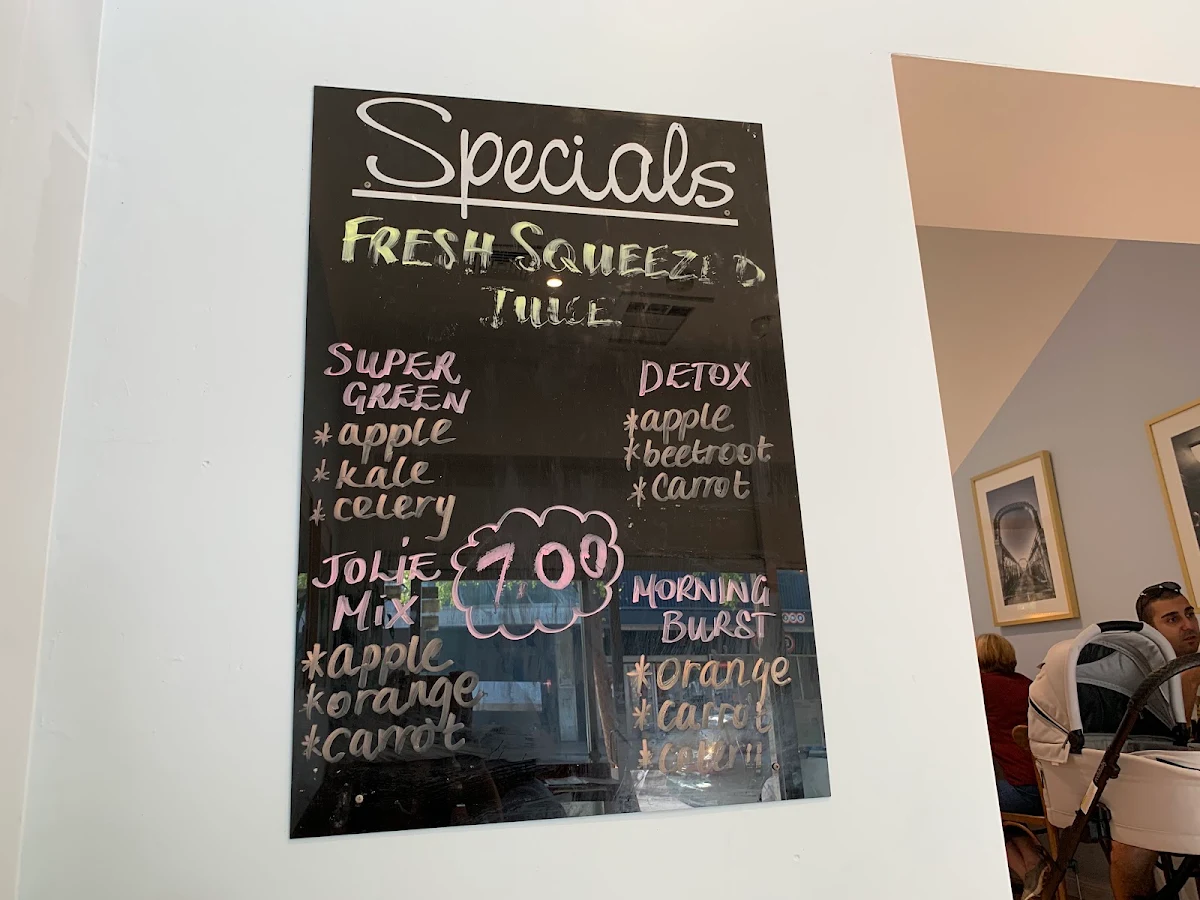 Specials
FRESH SQUEEZED
JUICE
SUPER
GREEN
*apple
*kale
*celery
DETOX
*apple
*beetroot
*carrot
7.00
JOLIE
MIX
*apple
*orange
*carrot
MORNING
BURST
*orange
*carrot
*celery